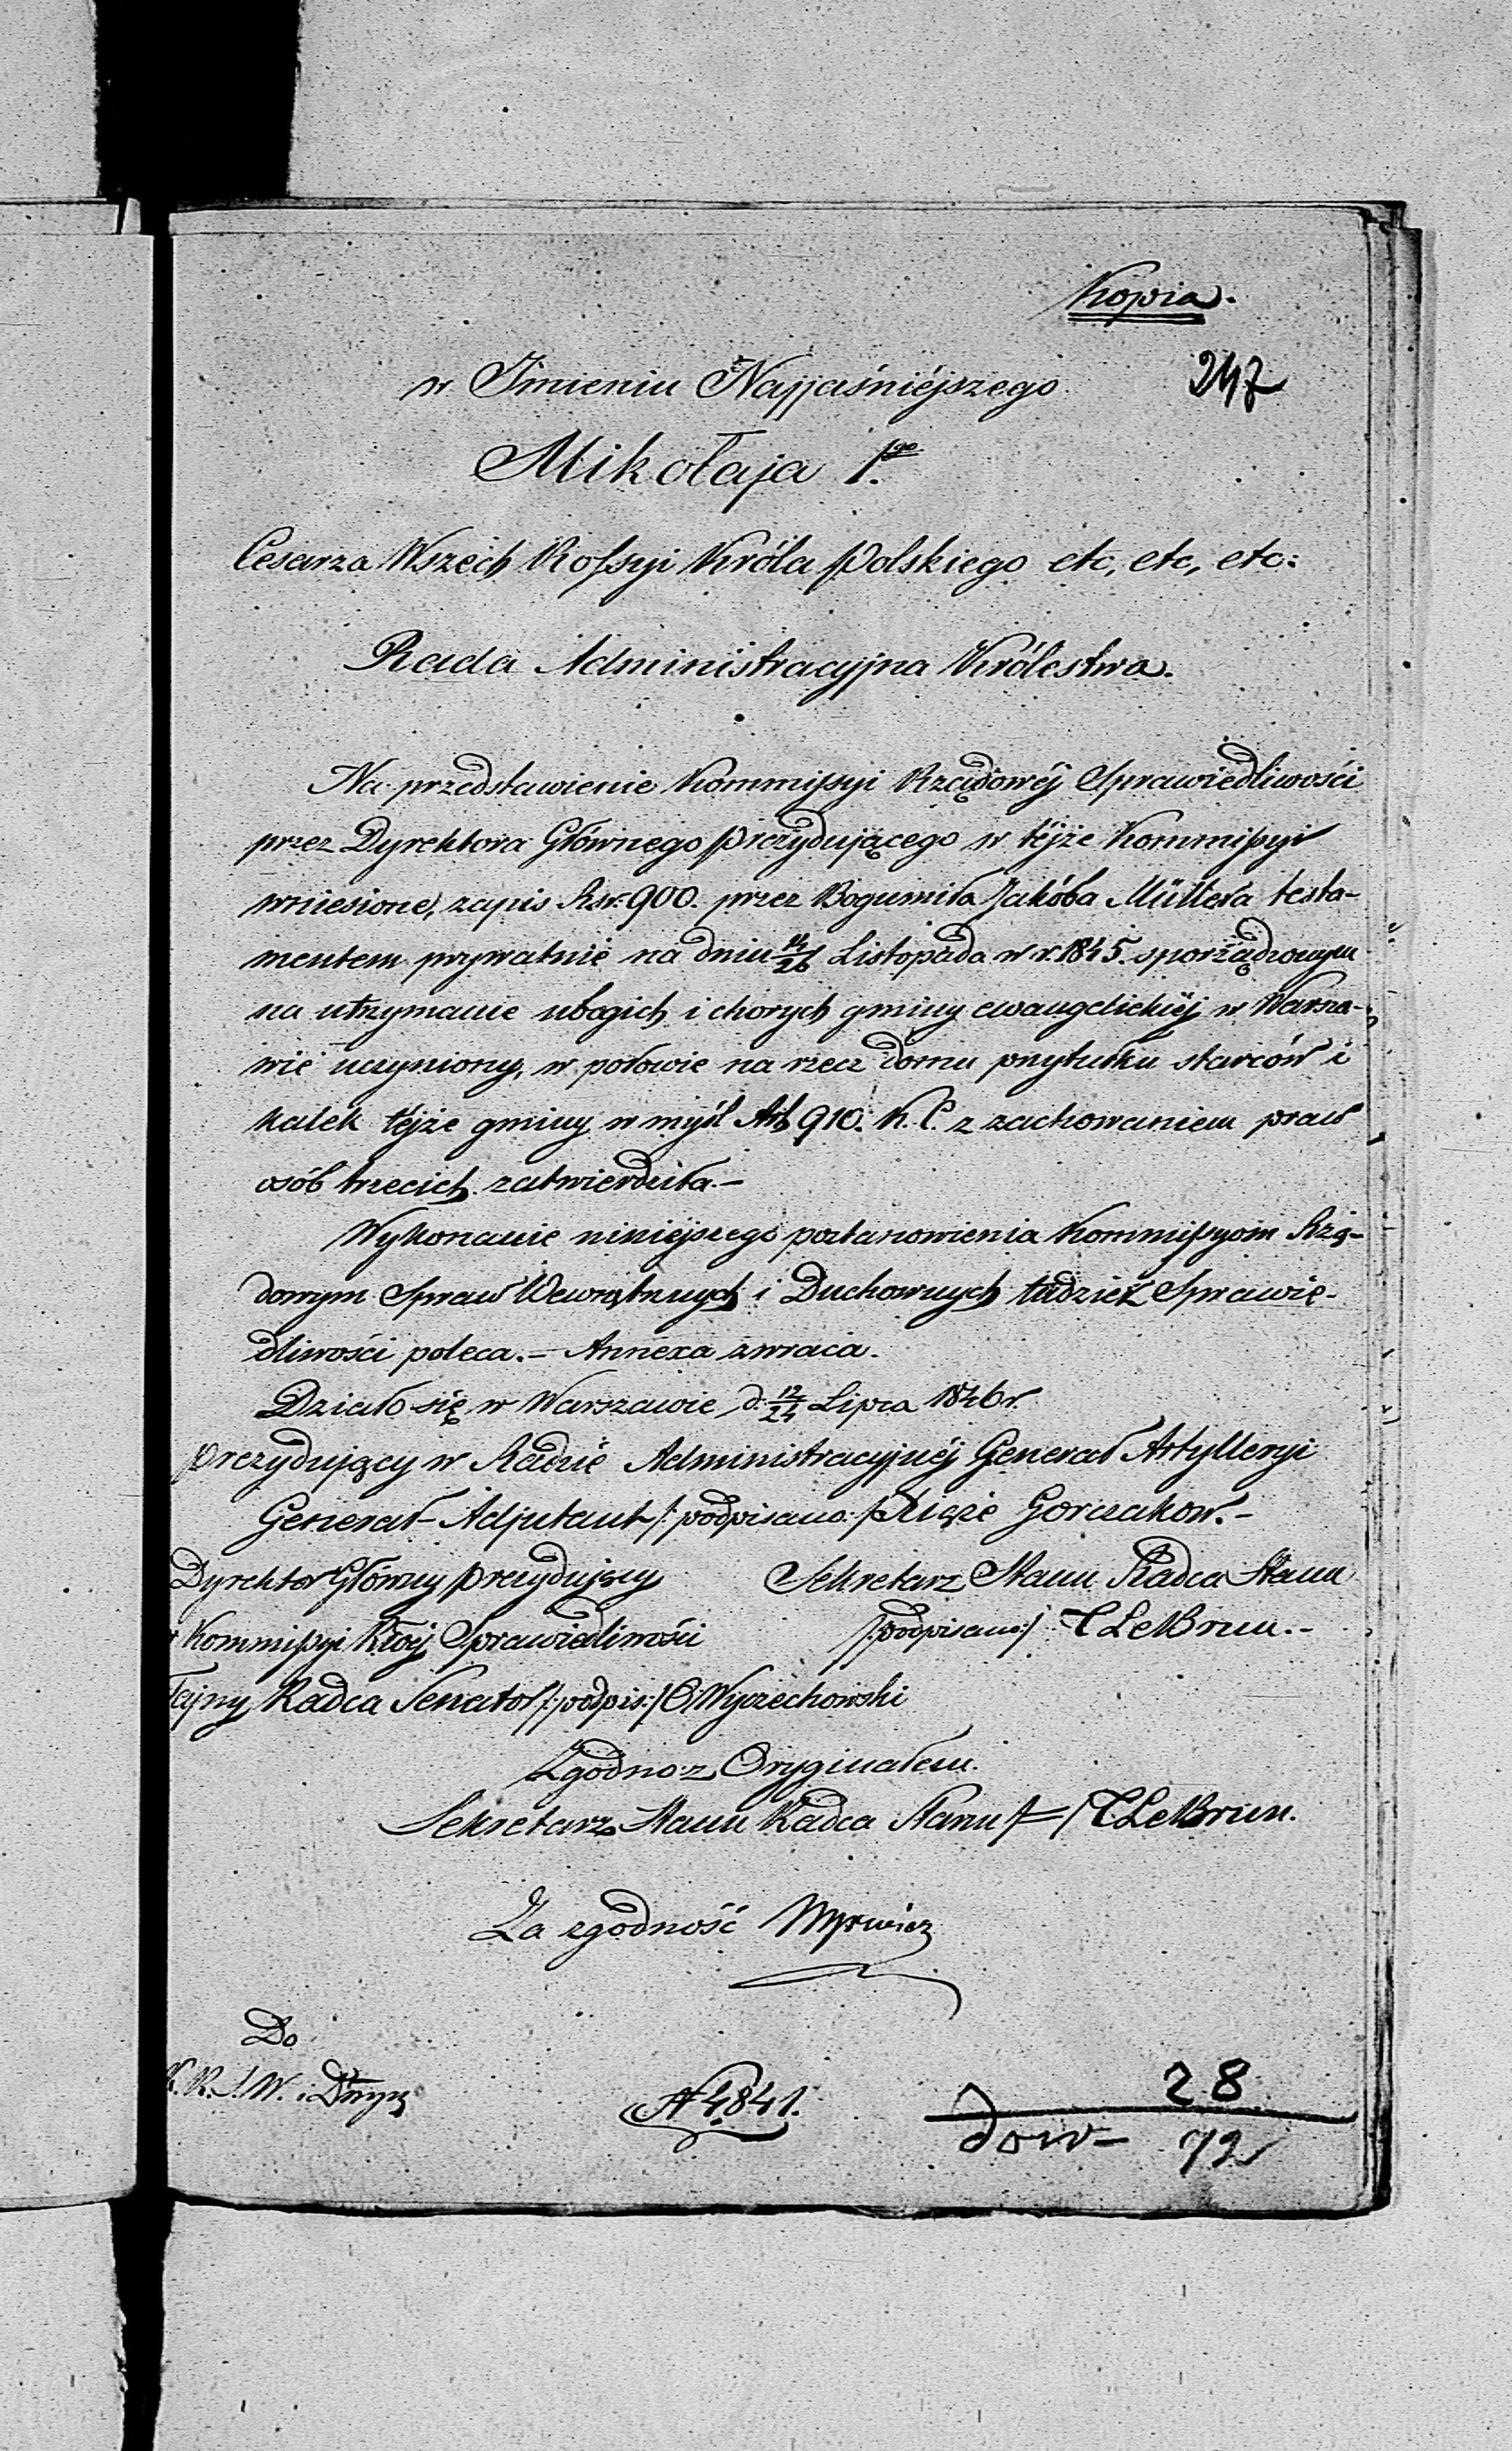 Kopia.
247
w Imieniu Najjaśniéjszego
Mikołaja 1.go
Cesarza Wszech Rossyi Króla Polskiego etc, etc, etc:
Rada Administracyjna Królestwa.
Na przedstawienie Kommissyi Rządowéj Sprawiedliwości
przez Dyrektora Głównego Prezydującego w téjże Kommissyi
wniesione, zapis Rsr: 900. przez Bogumiła Jakóba Müllera testa-
mentem prywatnie na dniu 14/26 Listopada w r. 1845. sporządzonym
na utrzymanie ubogich i chorych gminy ewangelickiéj w Warsza-
wie uczyniony, w połowie na rzecz domu przytułku starców i
kalek téjże gminy w myśl Art 910. K. C. z zachowaniem praw
osób trzecich zatwierdziła.—
Wykonanie niniejszego postanowienia Kommissyom Rzą-
dowym Spraw Wewnętrznych i Duchownych tudzież Sprawie-
dliwości poleca.— Annexa zwraca.
Działo się w Warszawie d. 12/24 Lipca 1846 r.
Prezydujący w Radzie Administracyjnéj Generał Artylleryi
Generał-Adjutant /: podpisano: / Xiąże Gorczakow.—
Dyrektor Główny Prezydujący
Sekretarz Stanu Radca Stanu
w Kommissyi Rwéj Sprawiedliwości
/: podpisano: / T LeBrun.—
Tajny Radca Senator /: podpis: / O: Wyczechowski
Zgodno z Oryginałem.
Sekretarz Stanu Radca Stanu /—/ T LeBrun.
Za zgodność
Do
K. R. S. W. i D
N 4841.
28
dow— 72